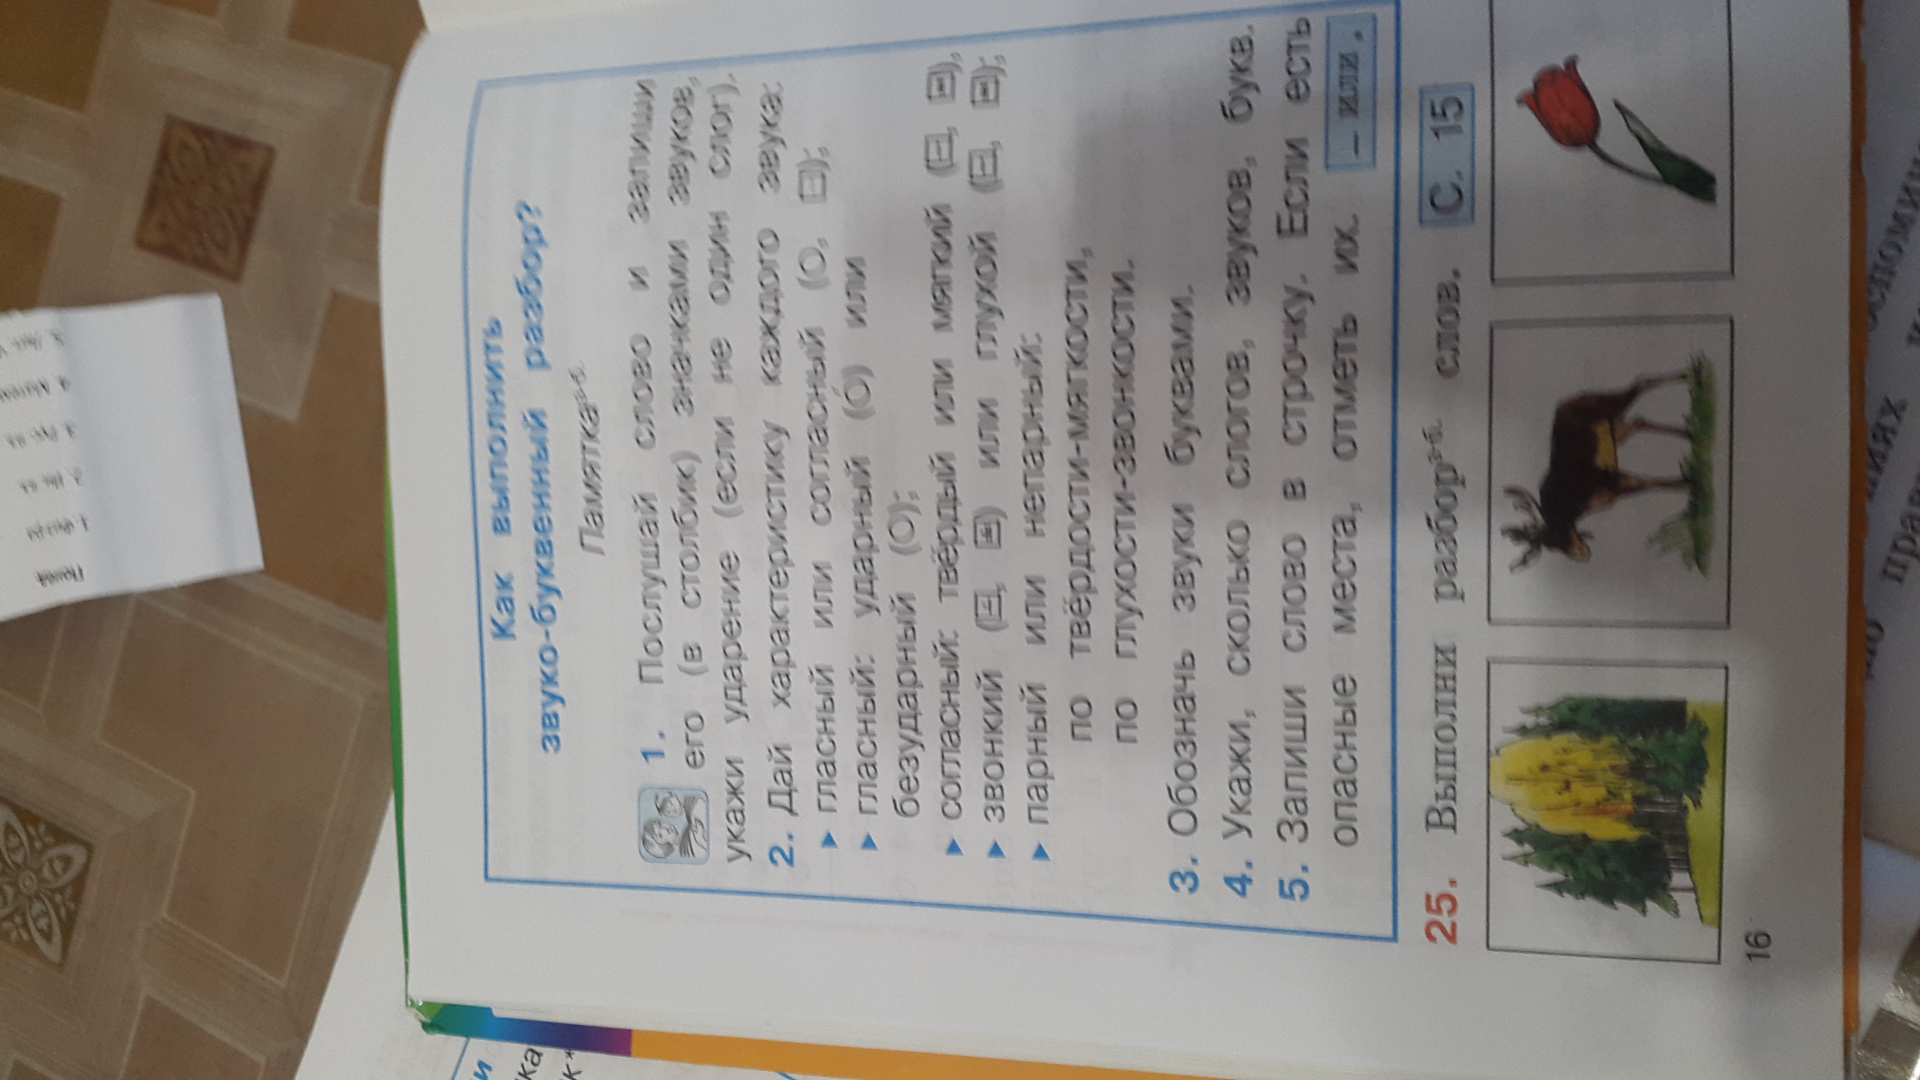 Как выполнить
звуко-буквенный разбор?
Памятка
1. Послушай слово и запиши
его (в столбик) значками звуков,
укажи ударение (если не один слог).
2. Дай характеристику каждого звука:
► гласный или согласный (О, □);
► гласный: ударный (О́) или
безударный (О);
► согласный: твёрдый или мягкий
► звонкий или глухой
► парный или непарный:
по твёрдости-мягкости,
по глухости-звонкости.
3. Обозначь звуки буквами.
4. Укажи, сколько слогов, звуков, букв.
5. Запиши слово в строчку. Если есть
опасные места, отметь их. – или .
25. Выполни разбор слов. С. 15
16